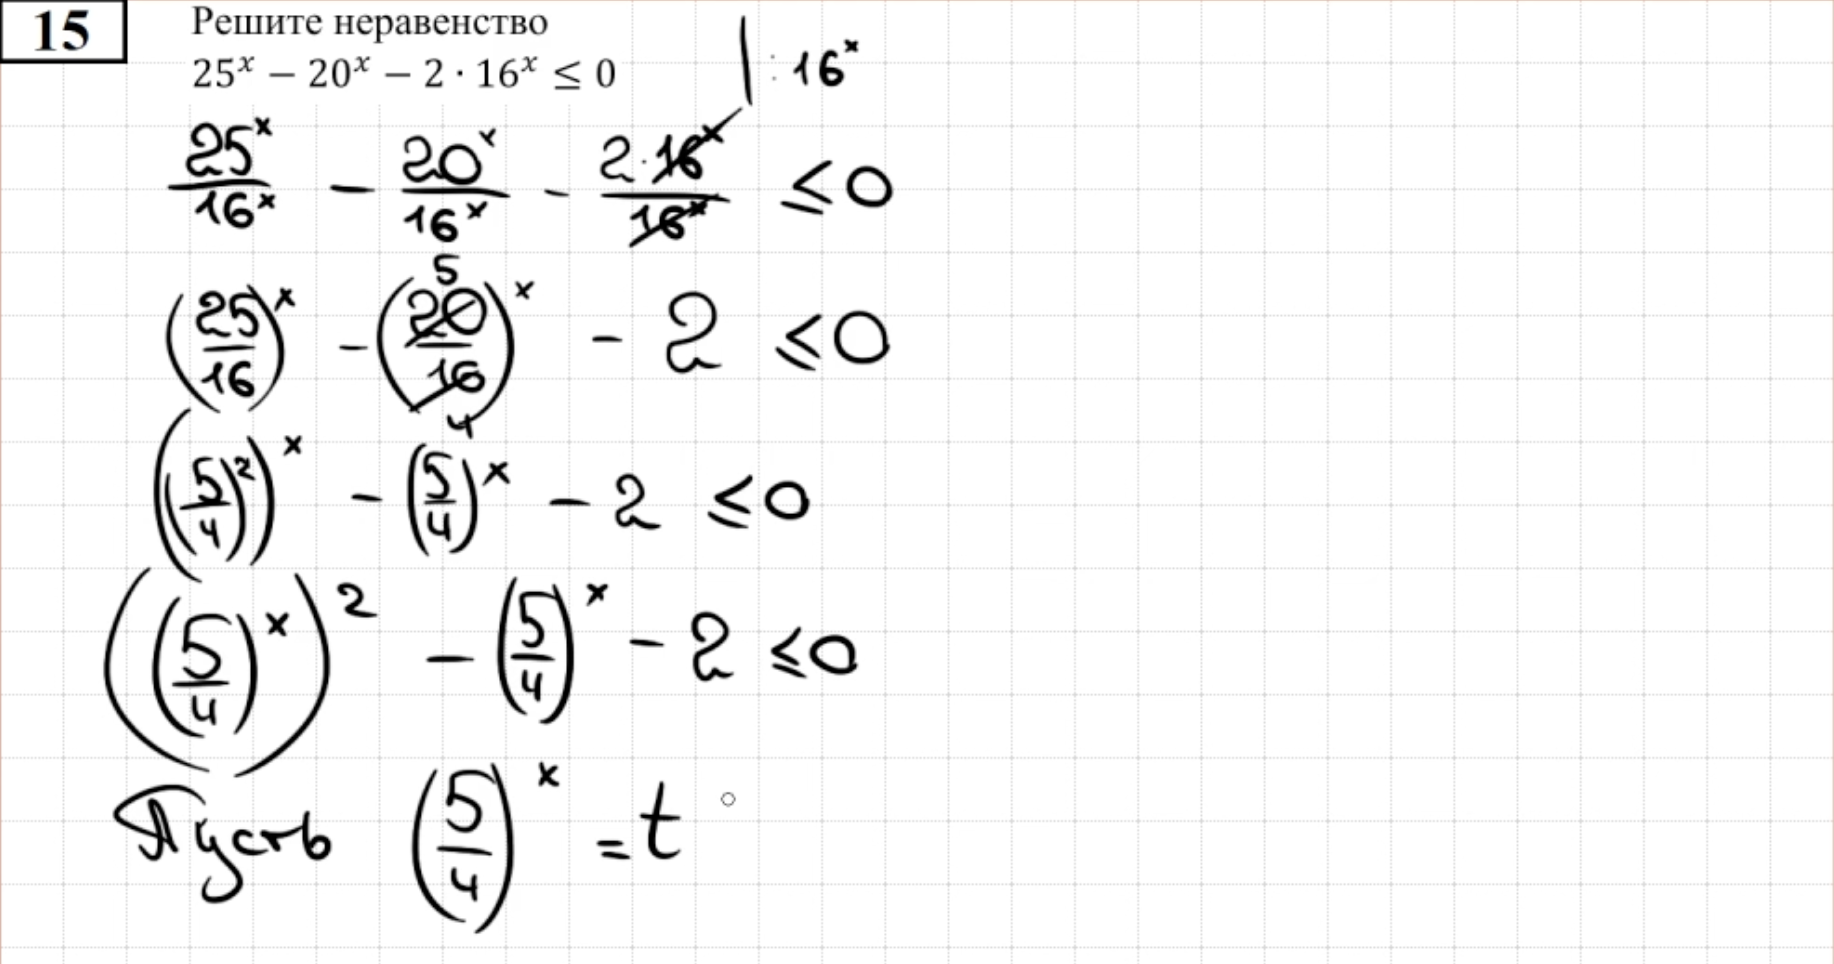 15
Решите неравенство
25ˣ − 20ˣ − 2 · 16ˣ ≤ 0 | : 16ˣ
25ˣ/16ˣ − 20ˣ/16ˣ − 2·16ˣ/16ˣ ≤ 0
(25/16)ˣ − (20/16)ˣ − 2 ≤ 0
5
4
((5/4)²)ˣ − (5/4)ˣ − 2 ≤ 0
((5/4)ˣ)² − (5/4)ˣ − 2 ≤ 0
Пусть (5/4)ˣ = t